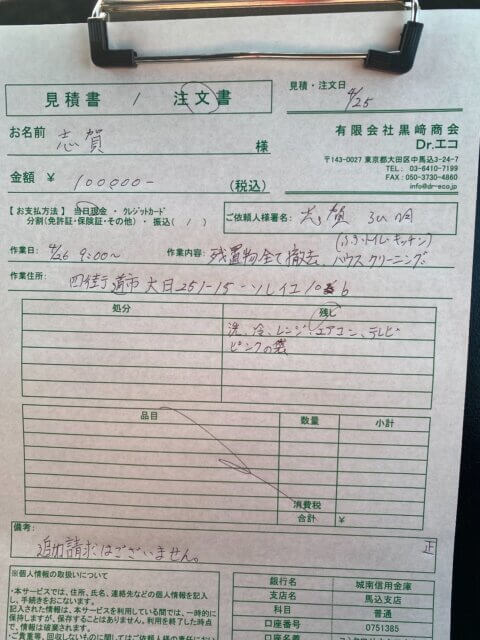 見積書 / 注文書
見積・注文日
4/25
お名前 志賀 様
有限会社黒﨑商会
Dr.エコ
〒143-0027 東京都大田区中馬込3-24-7
TEL: 03-6410-7199
FAX: 050-3730-4860
info@dr-eco.jp
金額 ¥ 100000- (税込)
【お支払方法】当日現金・クレジットカード
分割(免許証・保険証・その他)・振込( / )
ご依頼人様署名: 志賀
(ふろ・トイレ・キッチン)
作業日: 4/26 9:00〜 作業内容: 残置物全て撤去、ハウスクリーニング
作業住所: 四街道市大日251-15-ソレイユ
処分 残し
洗、冷、レンジ、エアコン、テレビ
ピンクの袋
品目 数量 小計
消費税
合計 ¥
備考:
追加請求はございません。 正
※個人情報の取扱いについて
・本サービスでは、住所、氏名、連絡先などの個人情報を記入
し、手続きをおこないます。
記入された情報は、本サービスを利用している間では、一時的に
保持しますが、保存することはありません。利用を終了した時点
で、情報は破棄されます。
銀行名 城南信用金庫
支店名 馬込支店
科目 普通
口座番号 0751385
口座名義